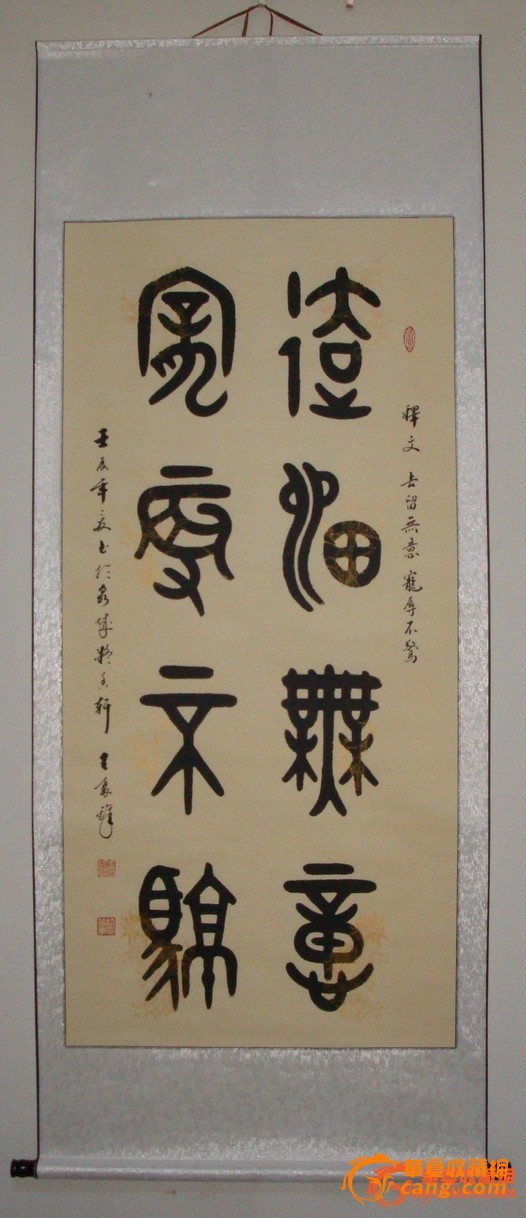 釋文 去留無意 寵辱不驚
去留無意
寵辱不驚
壬辰年夏書於泉城 軒 王
華夏收藏網
cang.com